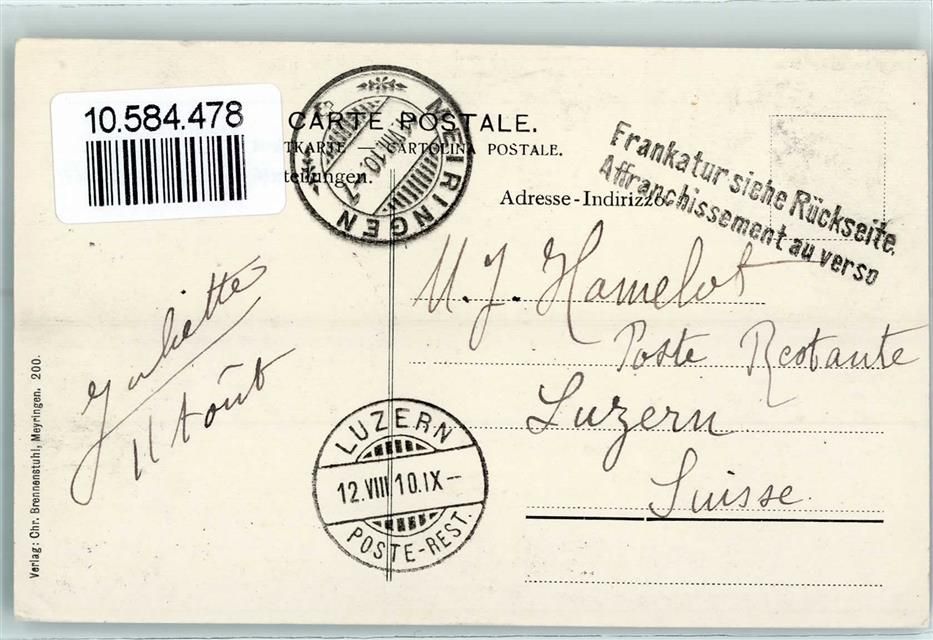 10.584.478
CARTE POSTALE.
TKARTE — CARTOLINA POSTALE.
teilungen.
Adresse-Indirizzo.
MEIRINGEN
VIII.10
Frankatur siehe Rückseite.
Affranchissement au verso
M. J. Hamelot
Poste Restante
Luzern
Suisse
Juliette
11 Août
LUZERN
12.VIII.10.IX—
POSTE-REST.
Verlag: Chr. Brennenstuhl, Meyringen. 200.